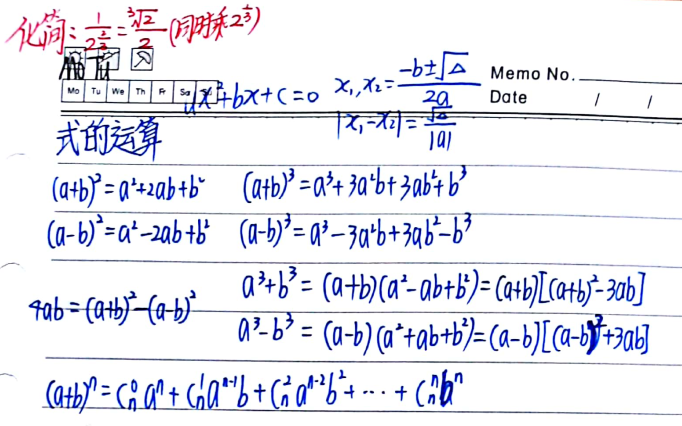 化简: 1/2^(2/3) = ∛2/2 (同时乘2^(1/3))
Mo Tu
Mo Tu We Th Fr Sa
ax²+bx+c=0  x₁,x₂ = (-b±√Δ)/2a
Memo No.
Date / /
|x₁-x₂| = √Δ/|a|
式的运算
(a+b)²=a²+2ab+b²  (a+b)³=a³+3a²b+3ab²+b³
(a-b)²=a²-2ab+b²  (a-b)³=a³-3a²b+3ab²-b³
a³+b³=(a+b)(a²-ab+b²)=(a+b)[(a+b)²-3ab]
4ab=(a+b)²-(a-b)²
a³-b³=(a-b)(a²+ab+b²)=(a-b)[(a-b)²+3ab]
(a+b)ⁿ=Cₙ⁰aⁿ+Cₙ¹aⁿ⁻¹b+Cₙ²aⁿ⁻²b²+⋯+Cₙⁿbⁿ